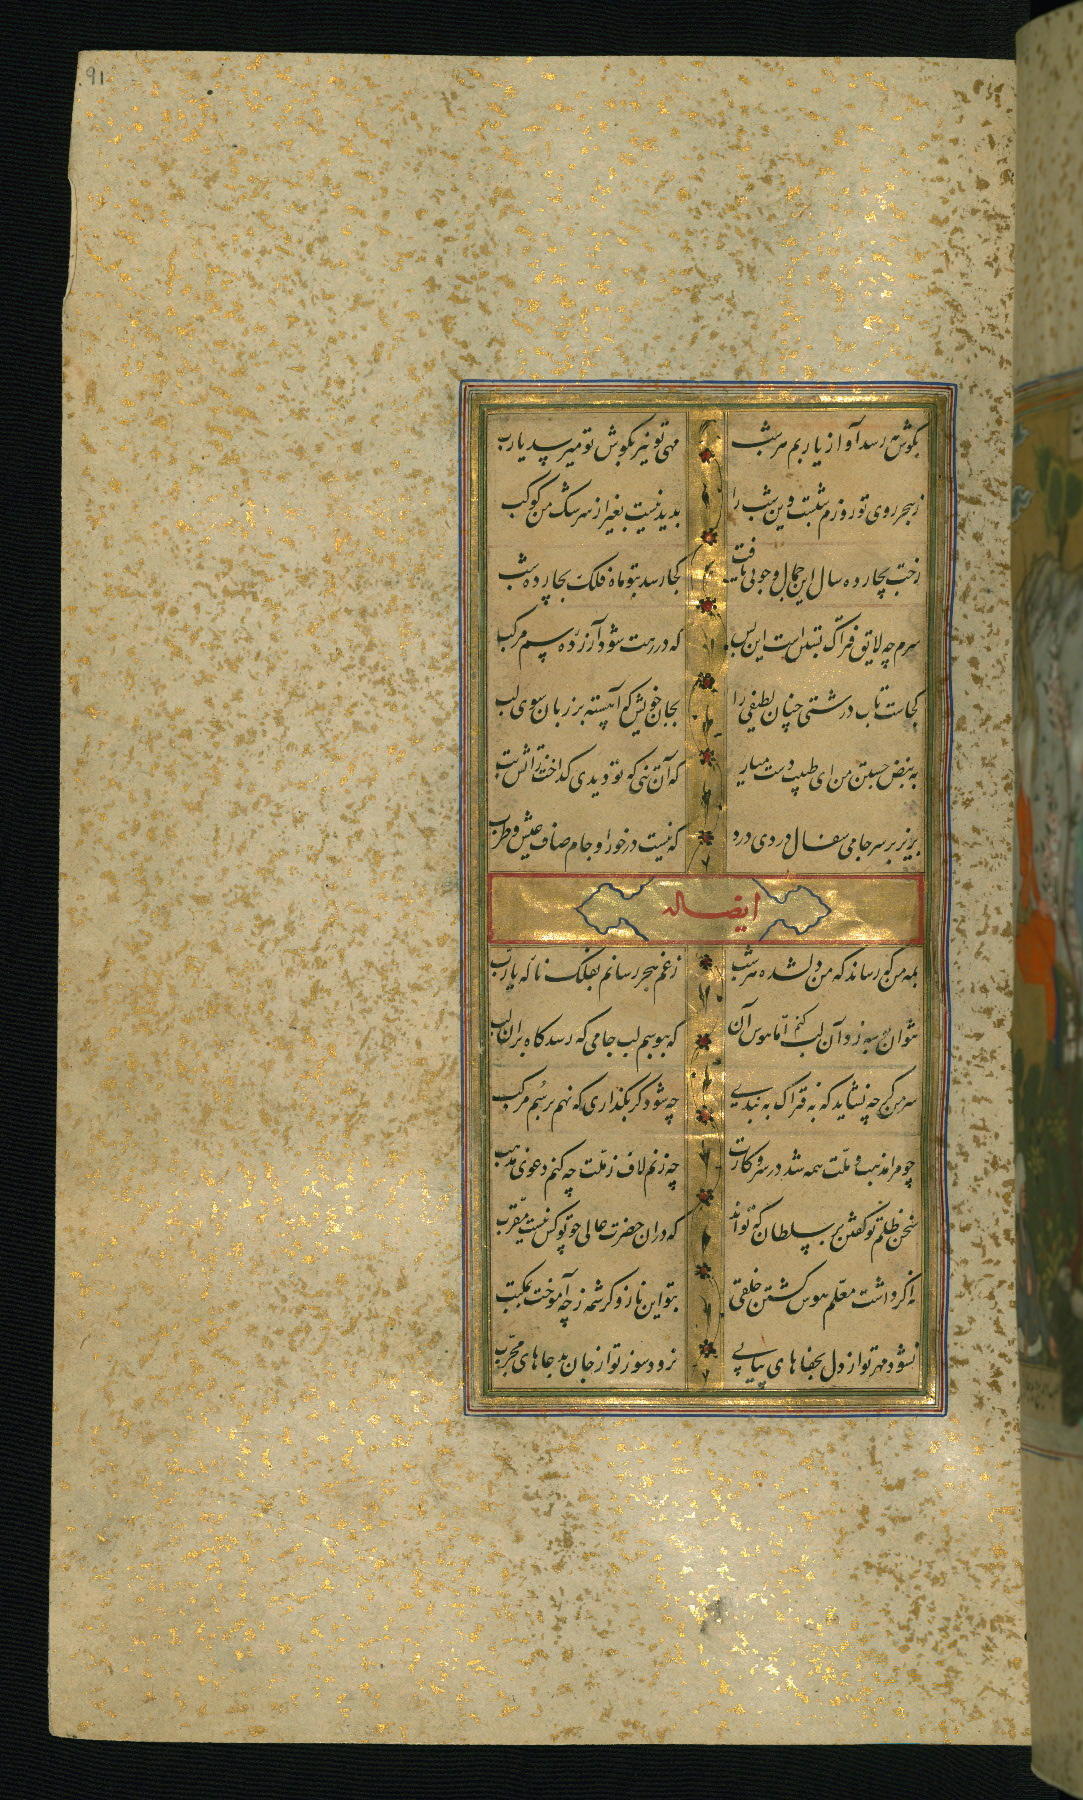 91
بگوش مه رسد آواز یاربم هر شب
مهی تو نیز بگوش تو میرسد یارب
زهجر روی تو روزم شبست وین شب را
بدید نیست بغیر از سرشک من کوکب
رخت بچارده سال این جمال و خوبی یافت
کجا رسد بتو ماه فلک بچارده شب
سرم چه لایق فتراک تست این بس
که در رهت شود آزرده سم مرکب
کجاست تاب درشتی چنان لطیفی را
بجان خویش که آهسته بر زبان سوی لب
به نبض جستن من ای طبیب دست میار
که آن تنی که تو دیدی گداخت ز آتش تب
بریز بر سر جامی سفال دردی درد
که نیست در خور او جام صاف عیش و طرب
ایضا له
بمه من که رساند که من دلشده هر شب
زغم هجر رسانم بفلک ناله یارب
نتوان بوسه زد آن لب کنم اما هوس آن
که ببوسم لب جامی که رسد گاه بران لب
سر من گرچه نشاید که به فتراک به بندی
چه شود گر بگذاری که نهم بر سم مرکب
چو مرا مذهب و ملت همه شد در سر و کارت
چه زنم لاف ز ملت چه کنم دعوی مذهب
سخن ظلم تو گفتن بر سلطان که تواند
که دران حضرت عالی چو تو کس نیست مقرب
نه اگر داشت معلم هوس کشتن خلقی
بتو این ناز و کرشمه ز چه آموخت بمکتب
نشود مهر تو از دل بجفاهای پیاپی
نرود سوز تو از جان بدعاهای مجرب